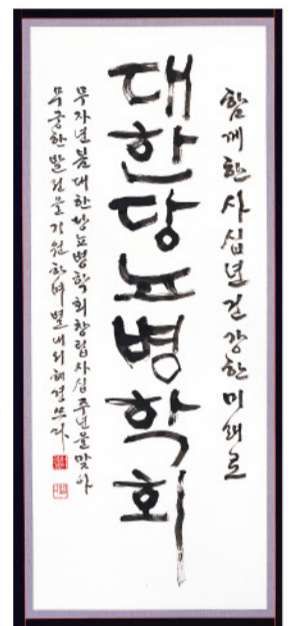 함께한 사십년 건강한 미래로
대한당뇨병학회
무자년 봄 대한당뇨병학회 창립 사십주년을 맞아
무궁한 발전을 기원하며 별내의 혜견 쓰다